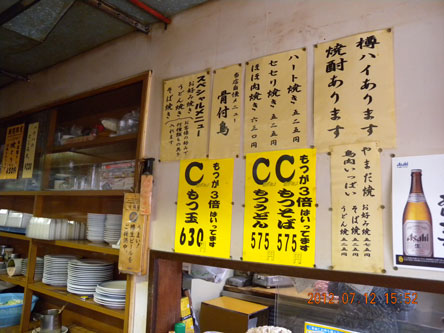 樽ハイあります
焼酎あります
ハート焼き 五二五円
セセリ焼き 五二五円
ほほ肉焼き 六三〇円
当店自慢メニュー
骨付鳥
スペシャルメニュー
お好み焼き
うどん焼き
そば焼き
入れます
もつが3倍
はいってます
C
もつ玉
630円
もつが3倍はいってます
C
C
もつそば
もつうどん
575円
575円
やまだ焼
鳥肉いっぱい
お好み焼
そば焼
うどん焼
Asahi
Asahi
2013.07.12 15:52